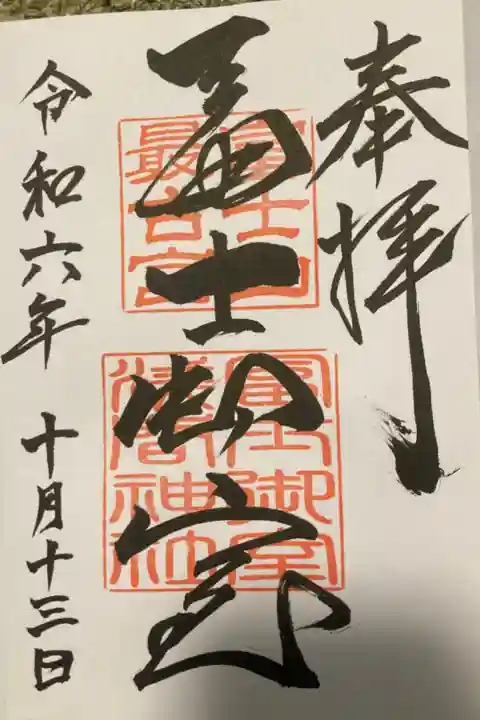 奉拝
冨士御室
富士山
最古宮
冨士御室
浅間神社
令和六年 十月十三日